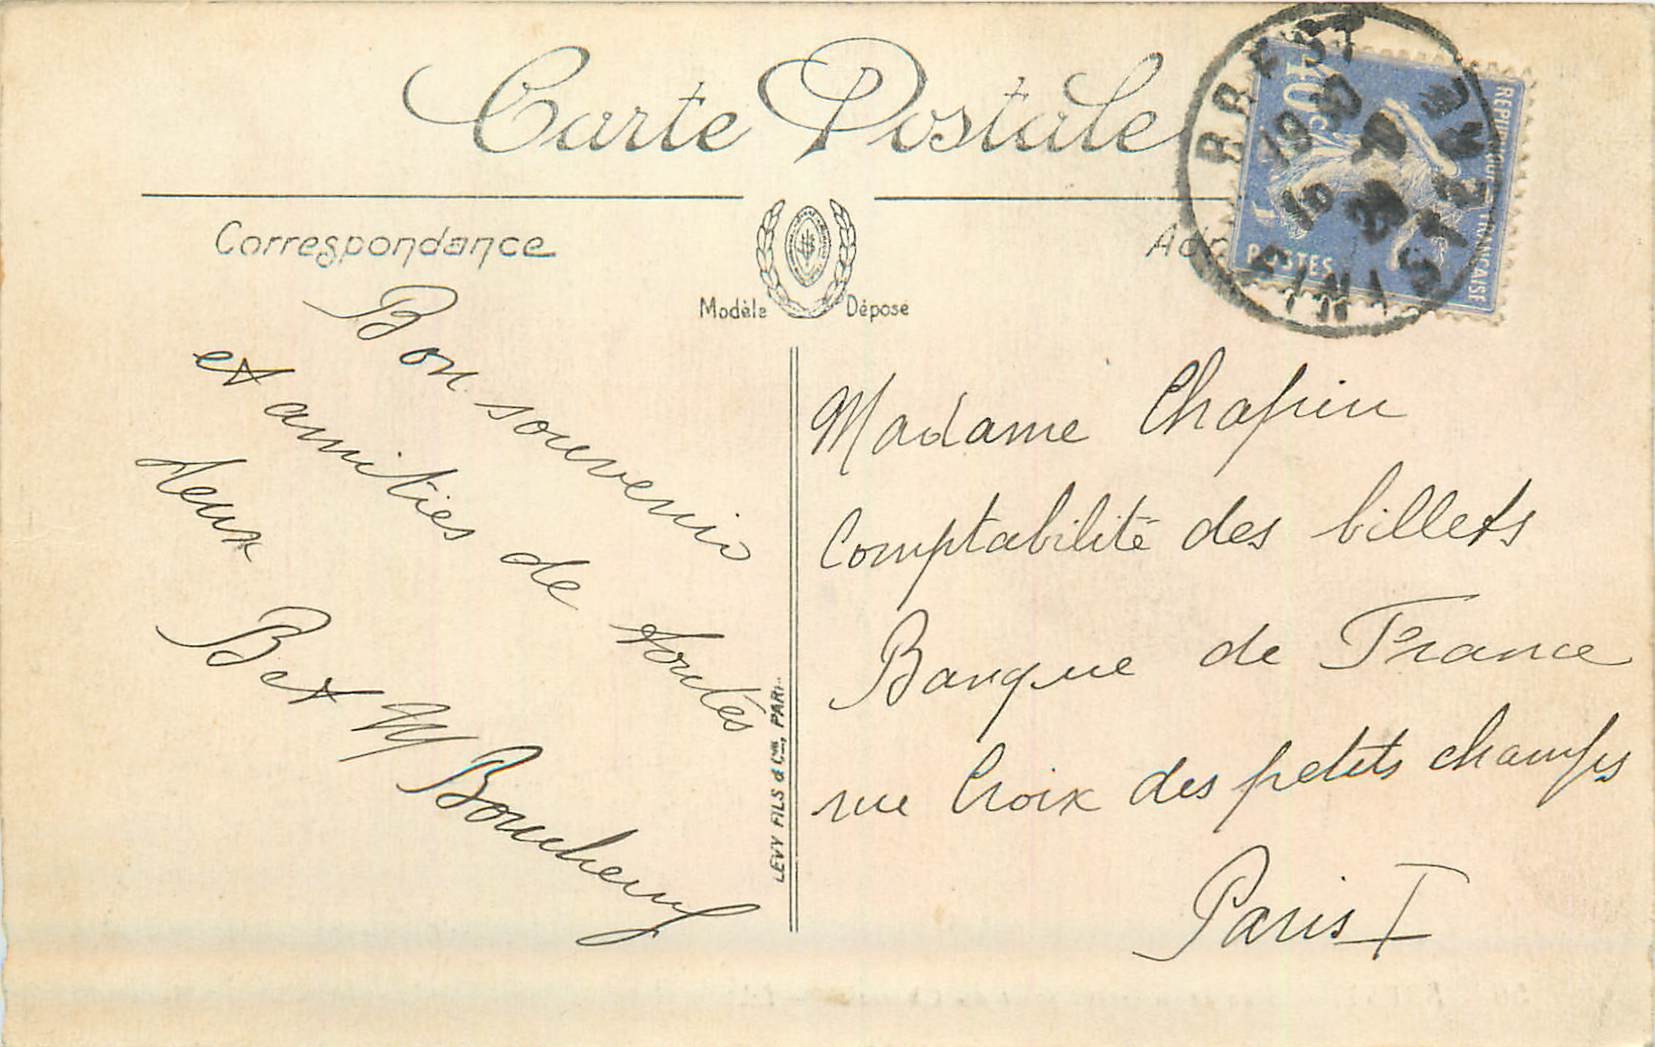 Carte Postale
Correspondance
Modèle Déposé
BREST
FINISTÈRE
40c
POSTES
REPUBLIQUE FRANÇAISE
Bon souvenir
et amitiés de toutes
deux
B et M
LEVY FILS & Cie, PARIS
Madame Chapin
Comptabilité des billets
Banque de France
rue Croix des petits champs
Paris I